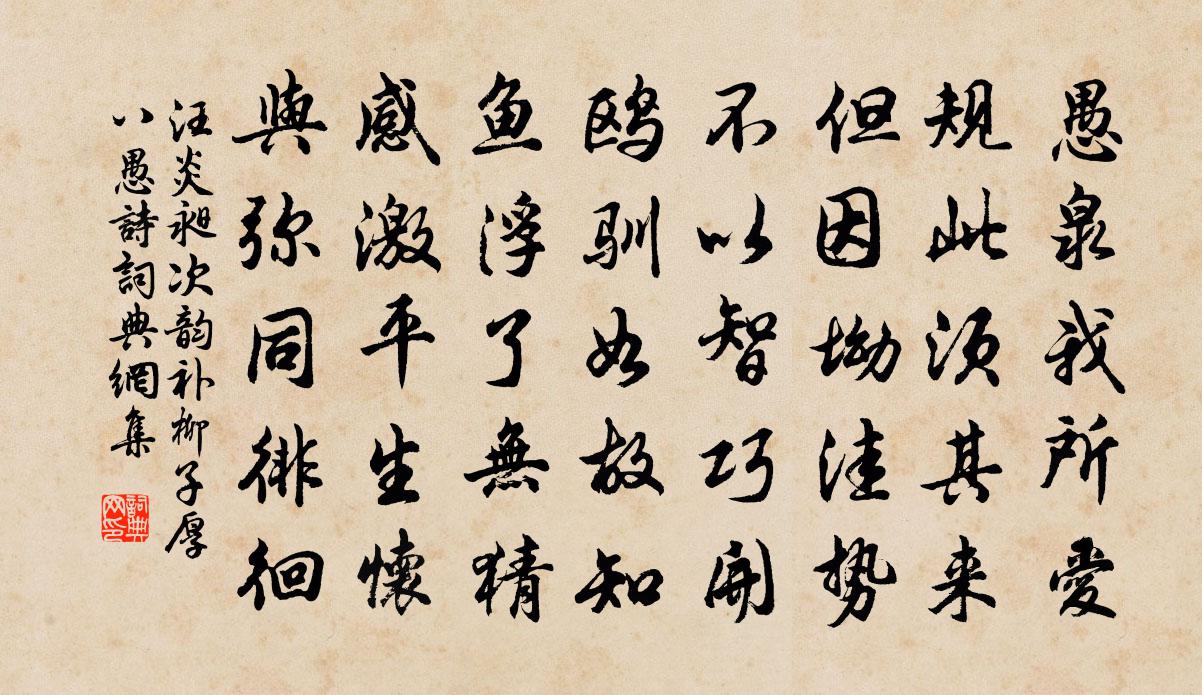 愚泉我所愛
規此须其来
但因坳洼势
不以智巧開
鸥馴如故知
鱼浮了無猜
感激平生懷
與弥同徘徊
汪炎昶次韵补柳子厚
八愚詩詞典網集
詞典
网印